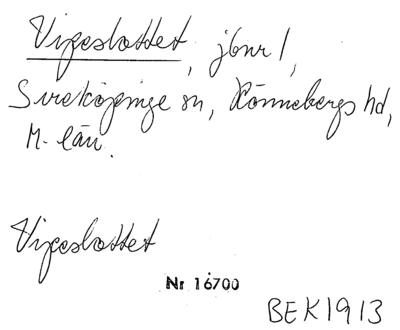 Vigeslottet, jbnr 1,
Sireköpinge sn, Rönnebergs hd,
M. län.
Vigeslottet
Nr 16700
BEK1913